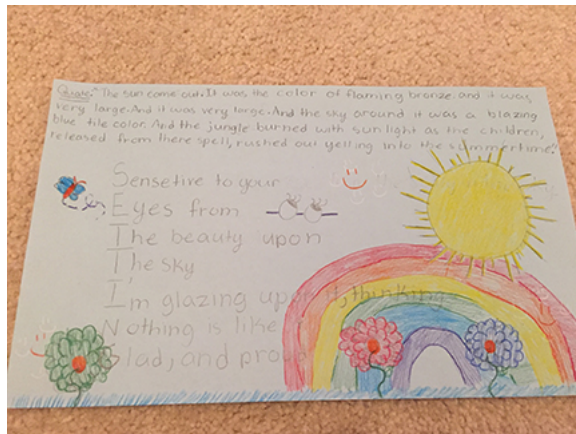 Quote: "The sun came out. It was the color of flaming bronze and it was
very large. And it was very large. And the sky around it was a blazing
blue tile color. And the jungle burned with sunlight as the children,
released from there spell, rushed out yelling into the summertime."
Sensetive to your
Eyes from
The beauty upon
The sky
I'm glazing upon it, thinking
Nothing is like
Glad, and proud